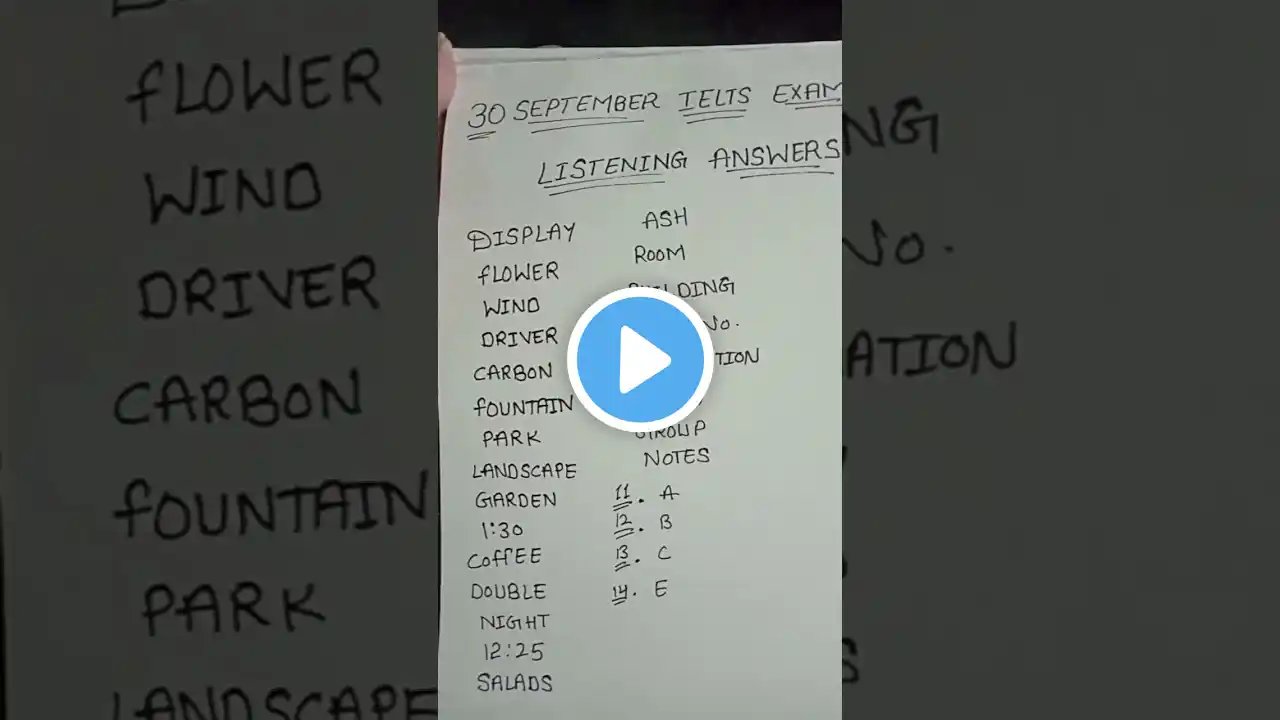 30 SEPTEMBER IELTS EXAM
LISTENING ANSWERS
DISPLAY
FLOWER
WIND
DRIVER
CARBON
FOUNTAIN
PARK
LANDSCAPE
GARDEN
1:30
COFFEE
DOUBLE
NIGHT
12:25
SALADS
ASH
ROOM
BUILDING
No.
GROUP
NOTES
11. A
12. B
13. C
14. E